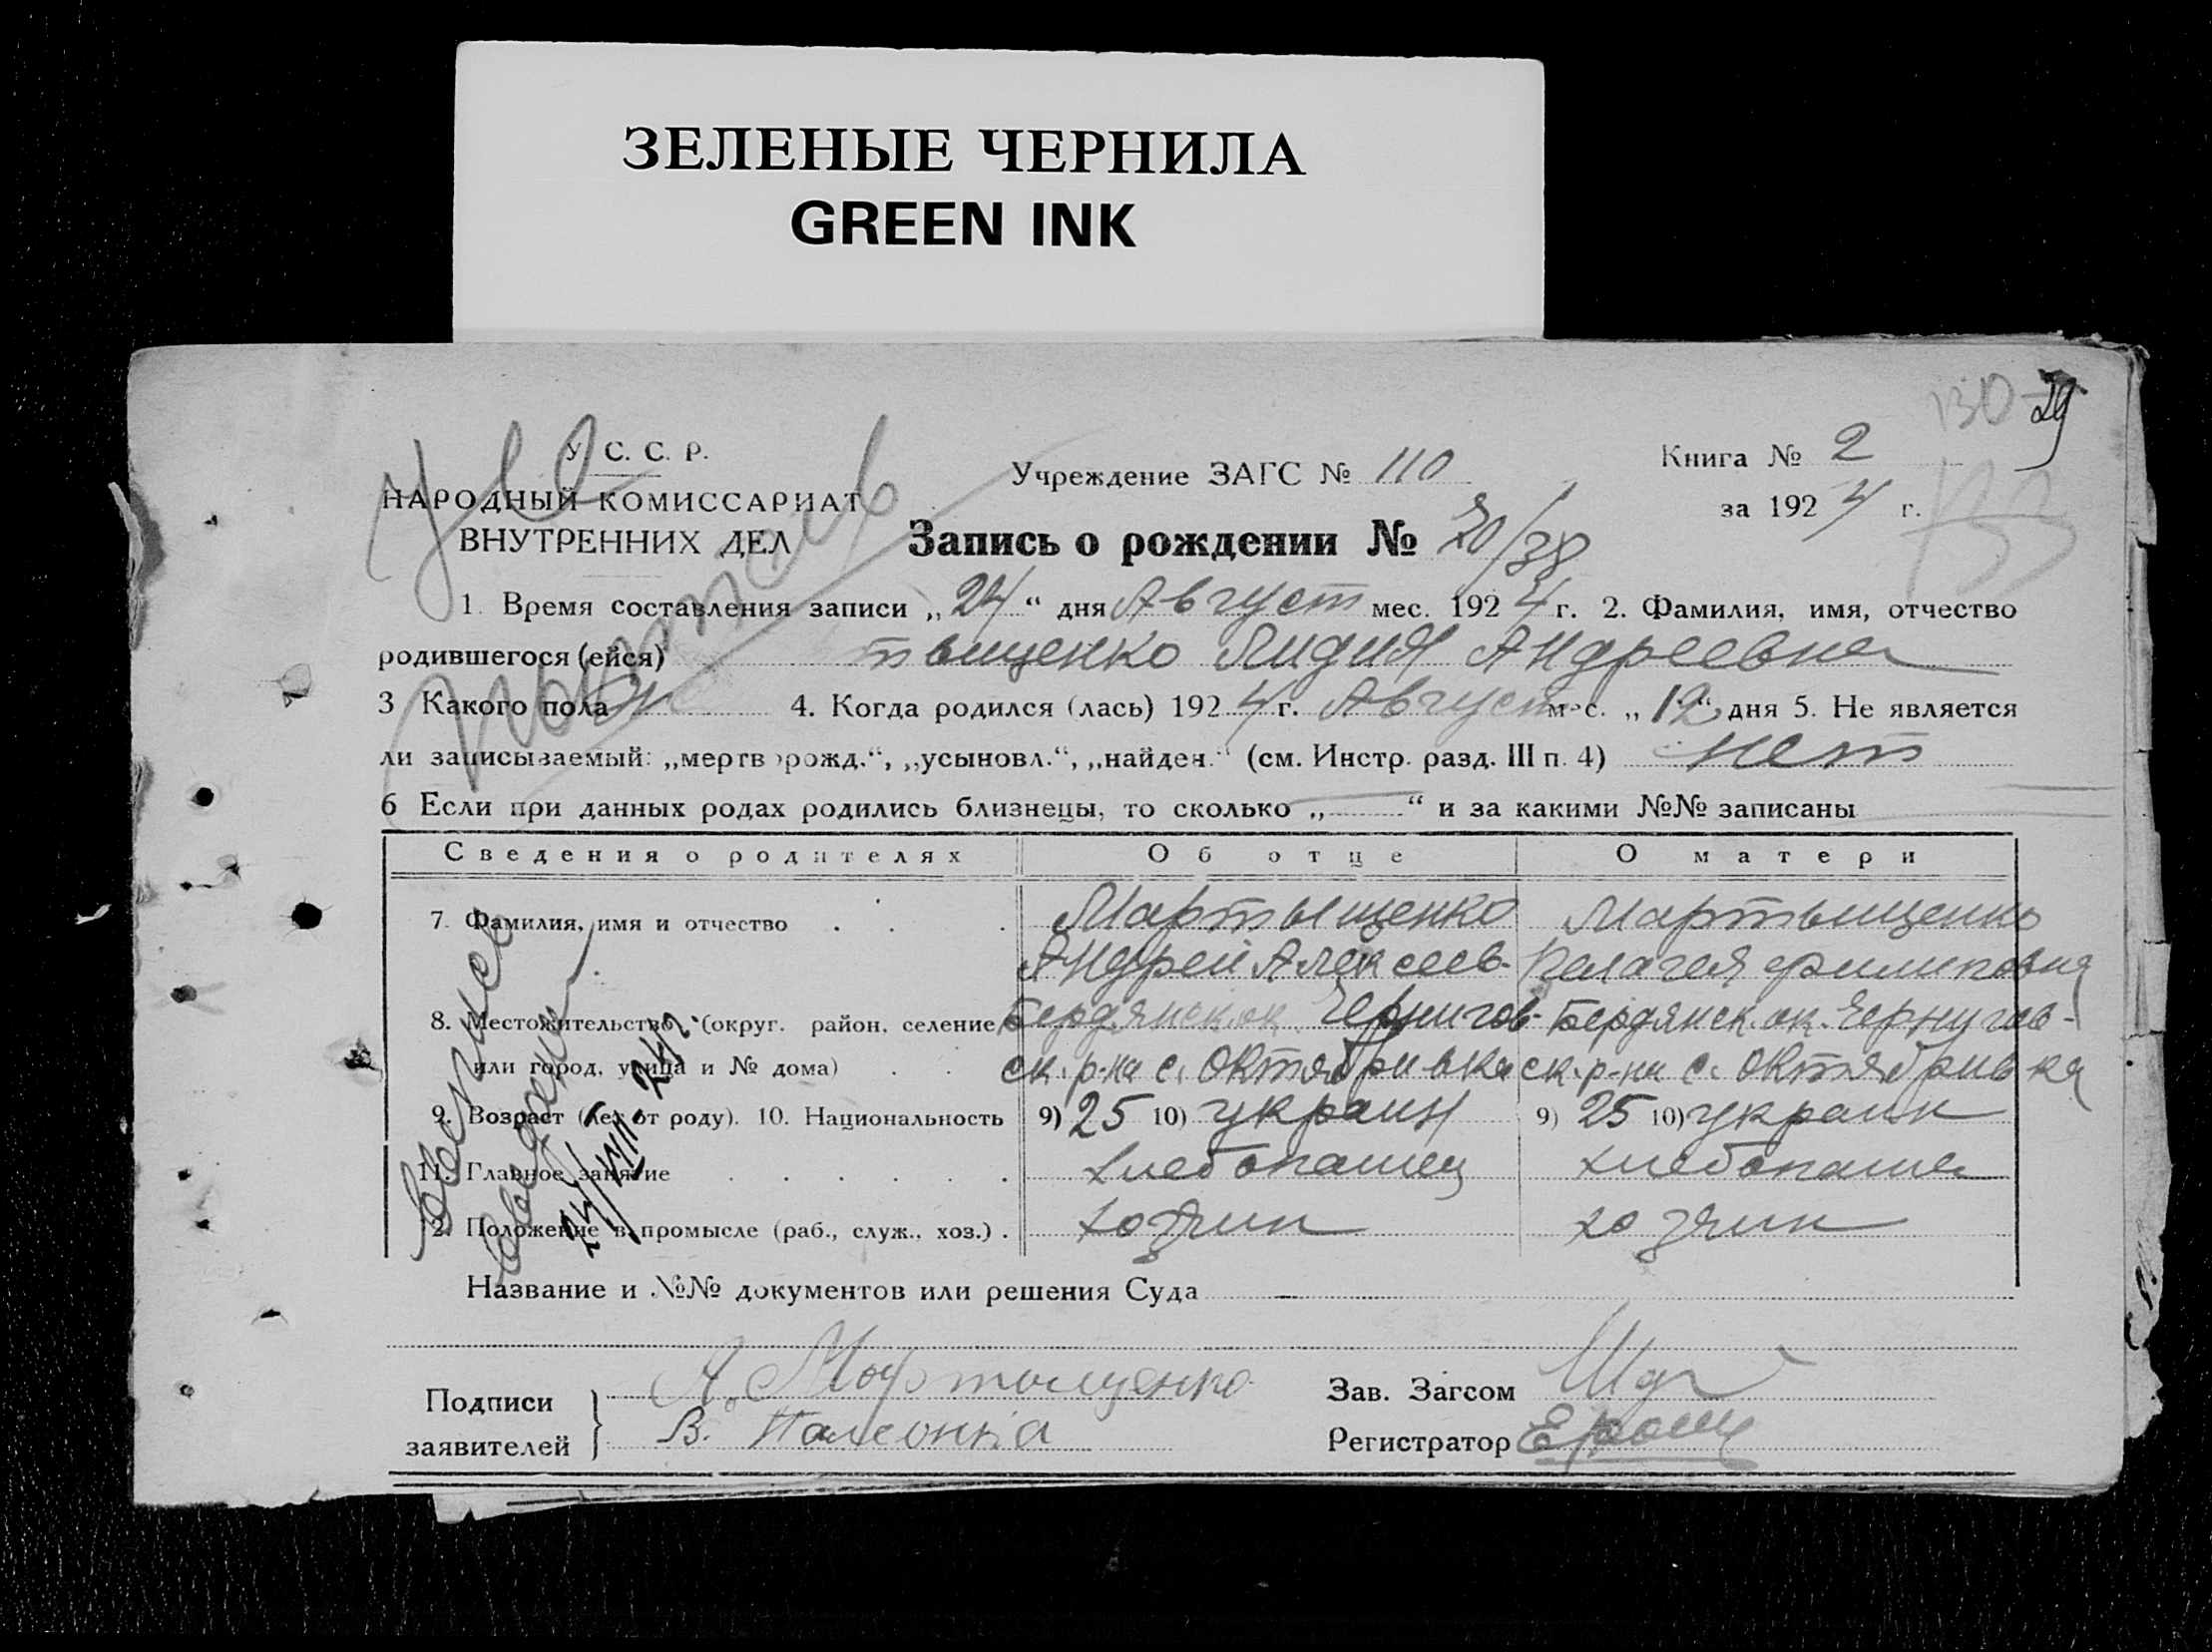 ЗЕЛЕНЫЕ ЧЕРНИЛА
GREEN INK
130 29
У. С. С. Р.
НАРОДНЫЙ КОМИССАРИАТ
ВНУТРЕННИХ ДЕЛ
Учреждение ЗАГС № 110
Книга № 2
за 1924 г.
Запись о рождении № 20/38
1. Время составления записи „24“ дня Август мес. 1924 г. 2. Фамилия, имя, отчество
родившегося (ейся) тыщенко Лидия Андреевна
3 Какого пола 4. Когда родился (лась) 1924 г. Август мес. „12“ дня 5. Не является
ли записываемый: „мертворожд.“, „усыновл.“, „найден.“ (см. Инстр. разд. III п. 4) нет
6 Если при данных родах родились близнецы, то сколько „—“ и за какими №№ записаны
Сведения о родителях Об отце О матери
7. Фамилия, имя и отчество Мартыщенко Мартыщенко
Андрей Алексеев- Пелагея Филиповна
8. Местожительство (округ. район, селение Бердянск. ок. Чернигов- Бердянск. ок. Чернигов-
или город, улица и № дома) ск. р-на с. Октябривка ск. р-на с. Октябривка
9. Возраст (лет от роду). 10. Национальность 9) 25 10) украин 9) 25 10) украин
11. Главное занятие хлебопашец хлебопашец
12. Положение в промысле (раб., служ., хоз.) хозяин хозяин
24/VIII-24 г.
Название и №№ документов или решения Суда —
Подписи А. Мартыщенко Зав. Загсом
заявителей В. Регистратор